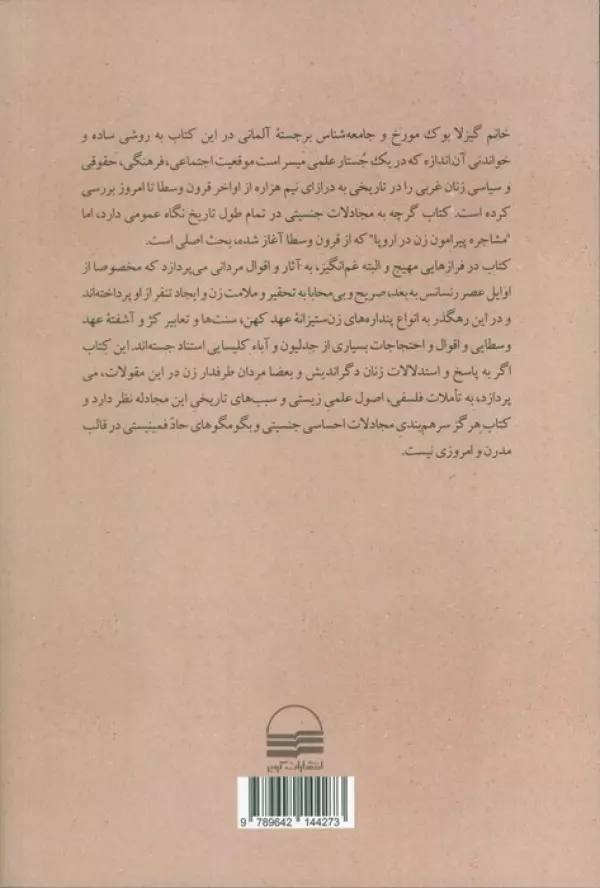 خانم گیزلا بوک مورخ و جامعه‌شناس برجستهٔ آلمانی در این کتاب به روشی ساده و
خواندنی آن‌اندازه که در یک جُستار علمی میسر است موقعیت اجتماعی، فرهنگی، حقوقی
و سیاسی زنان غربی را در تاریخی به درازای نیم هزاره از اواخر قرون وسطا تا امروز بررسی
کرده است. کتاب گرچه به مجادلات جنسیتی در تمام طول تاریخ نگاه عمومی دارد، اما
"مشاجره پیرامون زن در اروپا" که از قرون وسطا آغاز شده، بحث اصلی است.
کتاب در فرازهایی مهیج و البته غم‌انگیز، به آثار و اقوال مردانی می‌پردازد که مخصوصا از
اوایل عصر رنسانس به بعد، صریح و بی‌محابا به تحقیر و ملامت زن و ایجاد تنفر از او پرداخته‌اند
و در این رهگذر به انواع پنداره‌های زن‌ستیزانهٔ عهد کهن، سنت‌ها و تعابیر کژ و آشفتهٔ عهد
وسطایی و اقوال و احتجاجات بسیاری از جدلیون و آباء کلیسایی استناد جسته‌اند. این کتاب
اگر به پاسخ و استدلالات زنان دگراندیش و بعضا مردان طرفدار زن در این مقولات، می
پردازد، به تأملات فلسفی، اصول علمیِ زیستی و سبب‌های تاریخیِ این مجادله نظر دارد و
کتاب هرگز سرهم‌بندیِ مجادلات احساسی جنسیتی و بگومگوهای حادّ فمینیستی در قالب
مدرن و امروزی نیست.
انتشارات کویر
9 789642 144273